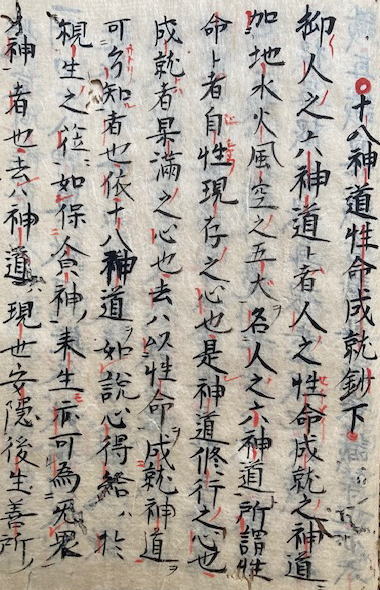 十八神道性命成就鈔下
抑人之六神道ト者人之性命成就之神道
加地水火風空之五大名人之六神道所謂性
命ト者自性現存之心也是神道修行之心也
成就者果満之心也去ハ以性命ヲ成就神道ヲ
可知者也依十八神道ヲ如説心得ハ於
現生之如保食神来生亦可為无畏
神者也去ハ神道現世安隠後生善所